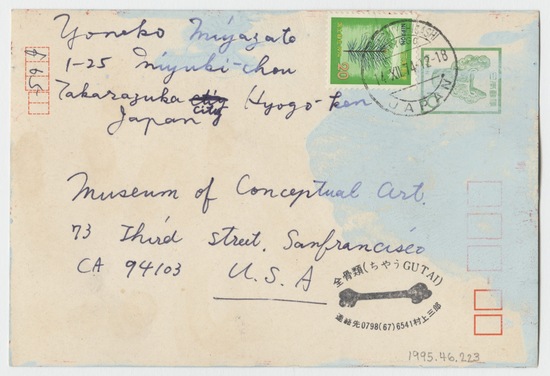 Yoneko Miyazato
1-25 Miyuki-chou
Takarazuka city Hyogo-ken
city
Japan
594
JAPAN
日本郵便
Museum of Conceptual Art.
73 Third street, Sanfrancisco
CA 94103
U.S.A
全骨類(ちやうGUTAI)
連絡先0798(67)6541村上三郎
1995.46.223